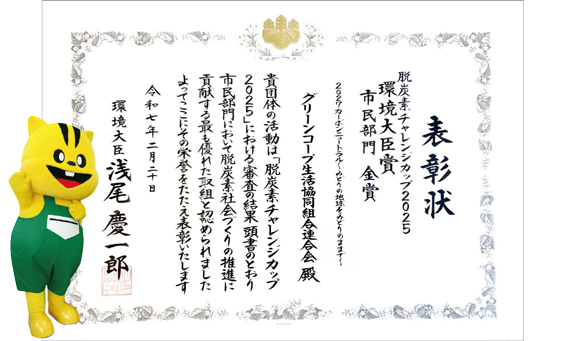 表彰状
脱炭素チャレンジカップ2025
環境大臣賞
市民部門 金賞
2027カーボンニュートラル〜みどりの地球をみどりのままで〜
グリーンコープ生活協同組合連合会 殿
貴団体の活動は「脱炭素チャレンジカップ
2025」における審査の結果 頭書のとおり
市民部門において脱炭素社会づくりの推進に
貢献する最も優れた取組と認められました
よってここにその栄誉をたたえ表彰いたします
令和七年二月二十日
環境大臣 浅尾慶一郎